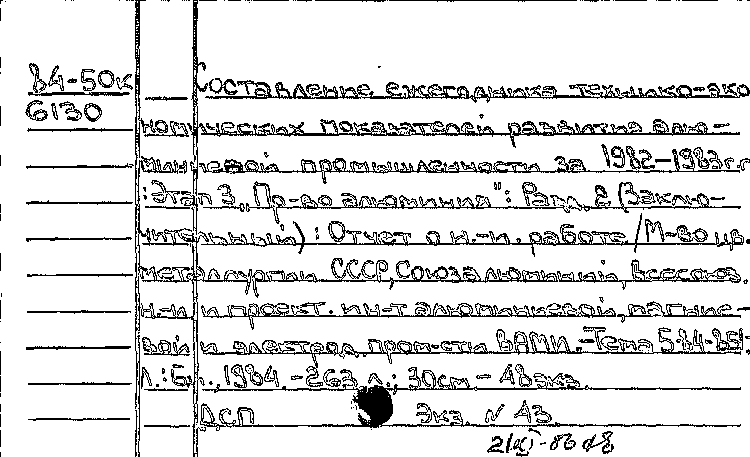 84-50к Составление ежегодника технико-эко
6130
номических показателей развития алю-
миниевой промышленности за 1982-1983гг
: Этап 3 "Пр-во алюминия": Разд. 2 (Заклю-
чительный) : Отчет о н.-и. работе / М-во цв.
металлургии СССР, Союзалюминий, Всесоюз.
н.-и. и проект. ин-т алюминиевой, магние-
вой и электрод. пром-сти ВАМИ. - Тема 5-84-851
Л.: Б.и., 1984. - 263 л.; 30см - 48экз.
ДСП Экз. N 43